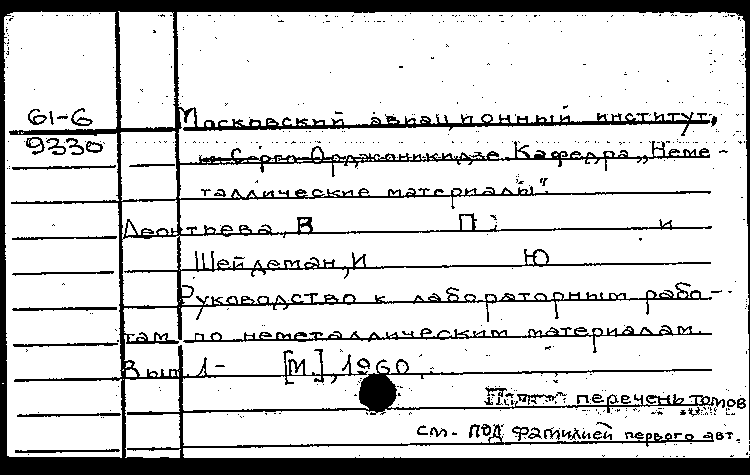 61-6
9330
Московский авиационный институт,
им. Серго Орджоникидзе. Кафедра „Неме-
таллические материалы".
Леонтьева, В П и
Шейдеман, И Ю
Руководство к лабораторным рабо-
там по неметаллическим материалам.
Вып. 1- [М.], 1960.
перечень томов
см. под фамилией первого авт.